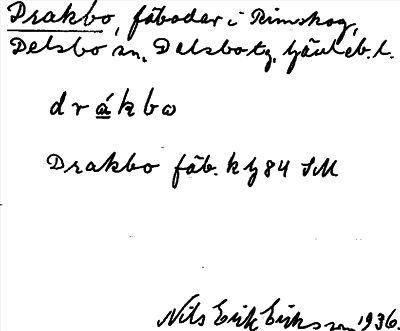 Drakbo, fäbodar i Rimskog,
Delsbo sn, Delsbo tg, Gävleb. l.
drákbo
Drakbo fäb. k g 84 SM
Nils Erik Eriksson 1936.